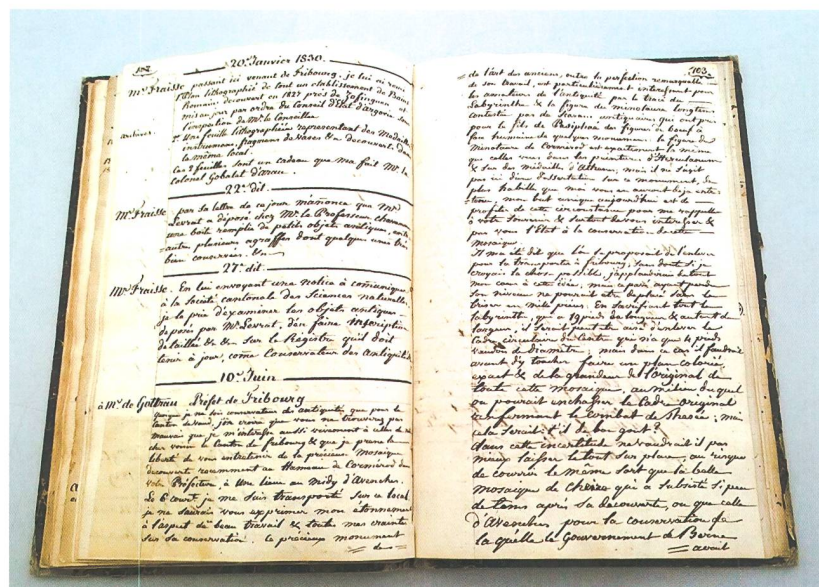 102.
20e Janvier 1830.
Mr Fraisse passant ici venant de Fribourg. je lui ai remis
1° Plan lithographié de tout un établissement de Bains
Romain découvert en 1827 près de Zofinguen
mis au jour par ordre du Conseil d'Etat d'Argovie sous
l'inspection de Mr le Conseiller
archives. 2° Une feuille lithographiée représentant des Médailles
instruments, fragmens de Vases &c découverts dans
le même local.
Ces 2 feuilles sont un cadeau que m'a fait Mr le
Colonel d'Arau.
22e dit.
Mr Fraisse par sa lettre de ce jour m'anonce que Mr
Levrat a déposé chez Mr le Professeur
une boite remplie de petits objets antiques, entr
autre plusieurs agraffes dont quelque unes très
bien conservées.
27e dit.
Mr Fraisse. En lui envoyant une notice à comuniquer
à la Société cantonale des Sciences naturelles,
je le prie d'examiner les objets antiques
déposés par Mr Levrat, d'en faire inscription
détaillée &c &c sur le Régistre qu'il doit
tenir à jour, come Conservateur des Antiquités
10e Juin
à Mr de Gottrau Préfet de Fribourg
Quoique je ne sois conservateur des antiquités que pour le
Canton de Vaud, j'ose croire que vous ne trouverez pas
mauvais que je m'intéresse aussi vivement à celles de
chez vous le Canton de fribourg & que je prene la
liberté de vous entretenir de la précieuse Mosaïque
découverte récemment au Hameau de Cormérod dans
votre Préfecture, à Une lieue au Midy d'Avenches.
Le 6 court je me suis transporté sur ce local
je ne saurois vous exprimer mon étonnement
à l'aspect de beau travail & toute mes craintes
sur sa conservation. Ce précieux monument
de
103.
de l'art des anciens, outre la perfection remarquable
de son travail, est particulièrement intéressant pour
les amateurs de l'Antiquité par le tracé du
Labyrinthe & la figure du minotaure longtems
contestée par de Savans antiquaires qui ont pris
pour le fils de Pasiphaé des figures de bœuf à
face humaine de quelques monumens. la figure du
Minotaure de Cormérod est exactement la même
que celles vues dans les peintures d'Herculanum
& sur des médailles d'Athènes, mais il ne s'agit
pas ici d'en dissertation sur ce monument, de
plus habiles que moi vous en auront déjà entre
tenu, mon but unique aujourd'hui est de
profiter de cette circonstance pour me rappeller
à votre Souvenir & surtout de vous intéresser &
par vous l'Etat à la conservation de cette
mosaïque.
Il m'a été dit que l'on se proposait de l'enlever
pour la transporter à fribourg, sans doute si je
croyais la chose possible, j'applaudirais de tout
mon cœur à cette idée, mais ayant perdu
son niveau ne pourrait être déplacée sans la
briser en mille pièces. En sacrifiant tout le
Labyrinthe, qui a 19 pieds de largeur & autant de
longeur, il serait peut être aisé d'enlever le
Cadre circulaire du Centre qui n'a que 4 pieds
vaudois de diamètre, mais dans ce cas il faudrait
avant d'y toucher faire une copie coloriée
exact & de la grandeur de l'original de
toute cette mosaïque, au milieu duquel
on pourrait enchasser le Cadre original
renfermant le combat de Thésée; mais
cela serait-t'il de bon goût?
dans cette incertitude ne vaudrait il pas
mieux laisser le tout sur place, au risque
de courrir le même sort que la belle
mosaïque de Cheire qui a subsisté si peu
de tems après sa découverte, ou que celle
d'Avenches pour la conservation de
la quelle le Gouvernement de Berne
avait